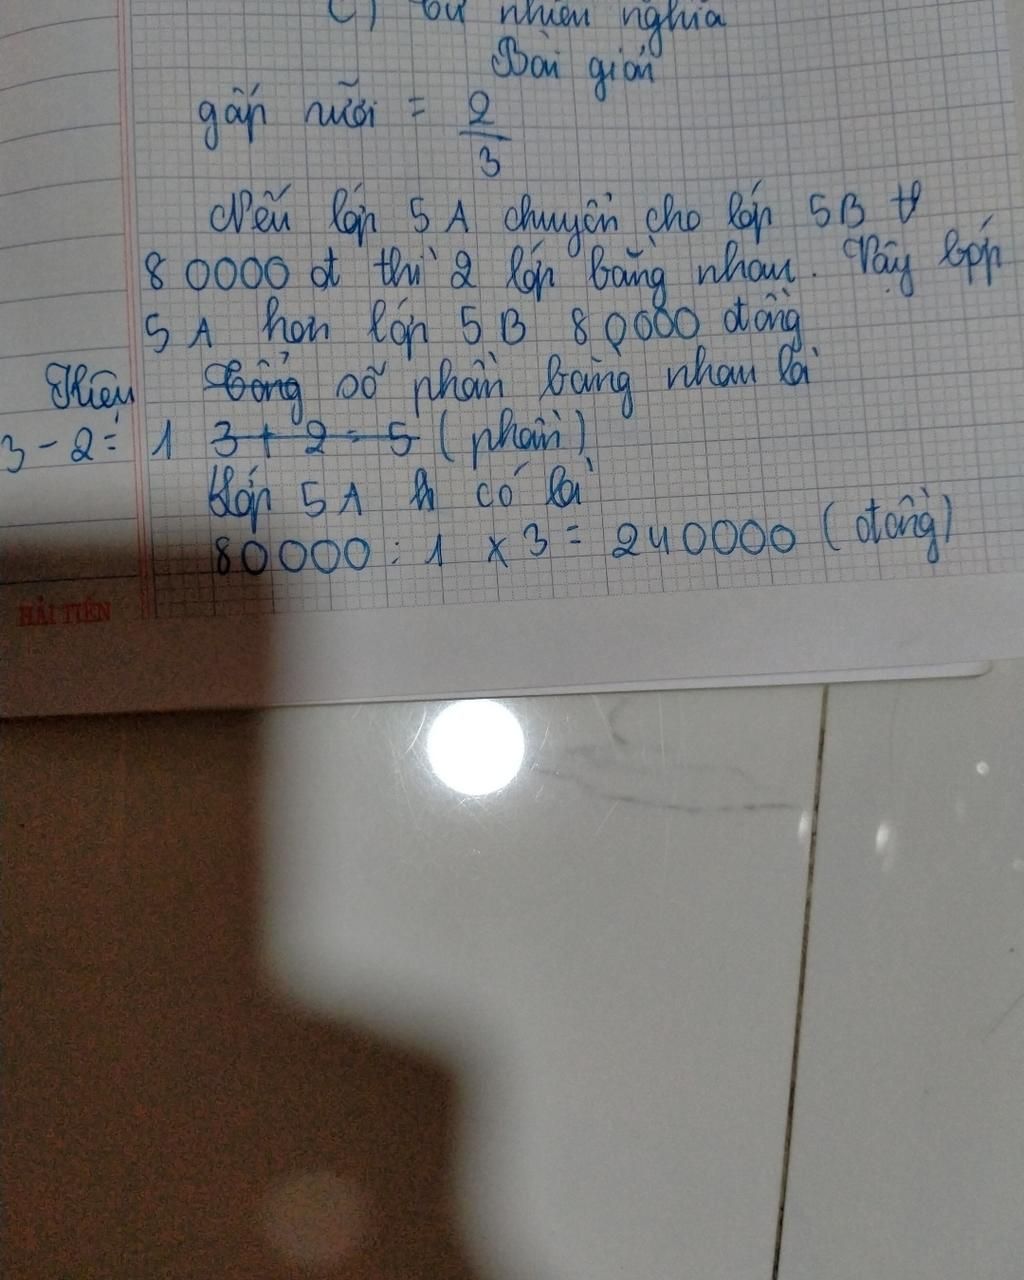 C) Từ nhiều nghĩa
Bài giải
gấp rưỡi = 2/3
Nếu lớp 5A chuyển cho lớp 5B
80000 đ thì 2 lớp bằng nhau. Vậy lớp
5A hơn lớp 5B 80000 đồng
Hiệu số phần bằng nhau là
3 - 2 = 1 3 + 2 = 5 (phần)
Lớp 5A có là
80000 : 1 x 3 = 240000 (đồng)
HẢI TIẾN